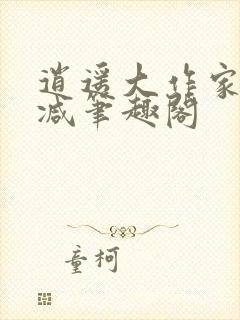 逍遥大作家
减笔趣阁
童柯